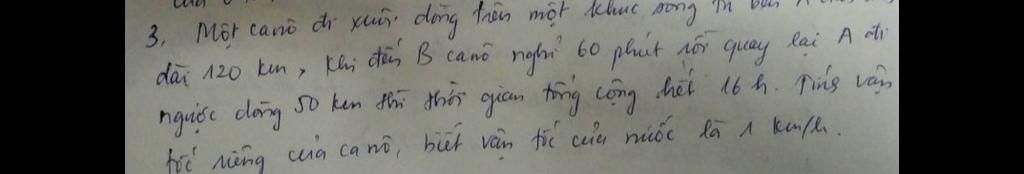 3, Một canô đi xuôi dòng trên một khúc sông từ bến A
dài 120 km, khi đến B canô nghỉ 60 phút rồi quay lại A đi
ngược dòng 50 km thì thời gian tổng cộng hết 16 h. Tính vận
tốc riêng của canô, biết vận tốc của nước là 1 km/h.